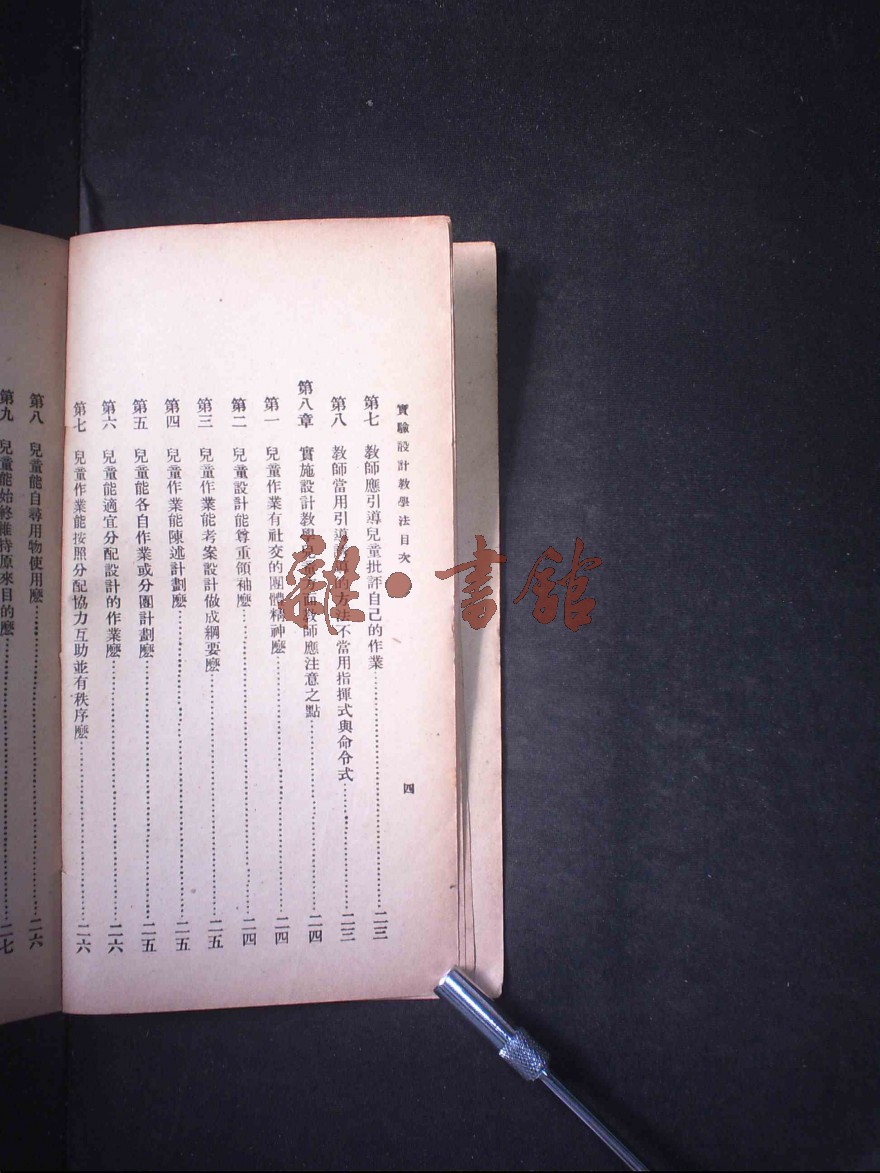 實驗設計教學法目次
四
第七 教師應引導兒童批評自己的作業 二三
第八 教師當用引導的方法不當用指揮式與命令式 二三
第八章 實施設計教學兒童方面教師應注意之點 二四
第一 兒童作業有社交的團體精神麼 二四
第二 兒童設計能尊重領袖麼 二四
第三 兒童作業能考案設計做成綱要麼 二五
第四 兒童作業能陳述計劃麼 二五
第五 兒童能各自作業或分團計劃麼 二五
第六 兒童能適宜分配設計的作業麼 二六
第七 兒童作業能按照分配協力互助並有秩序麼 二六
第八 兒童能自尋用物使用麼 二六
第九 兒童能始終維持原來目的麼 二七
雜·書館